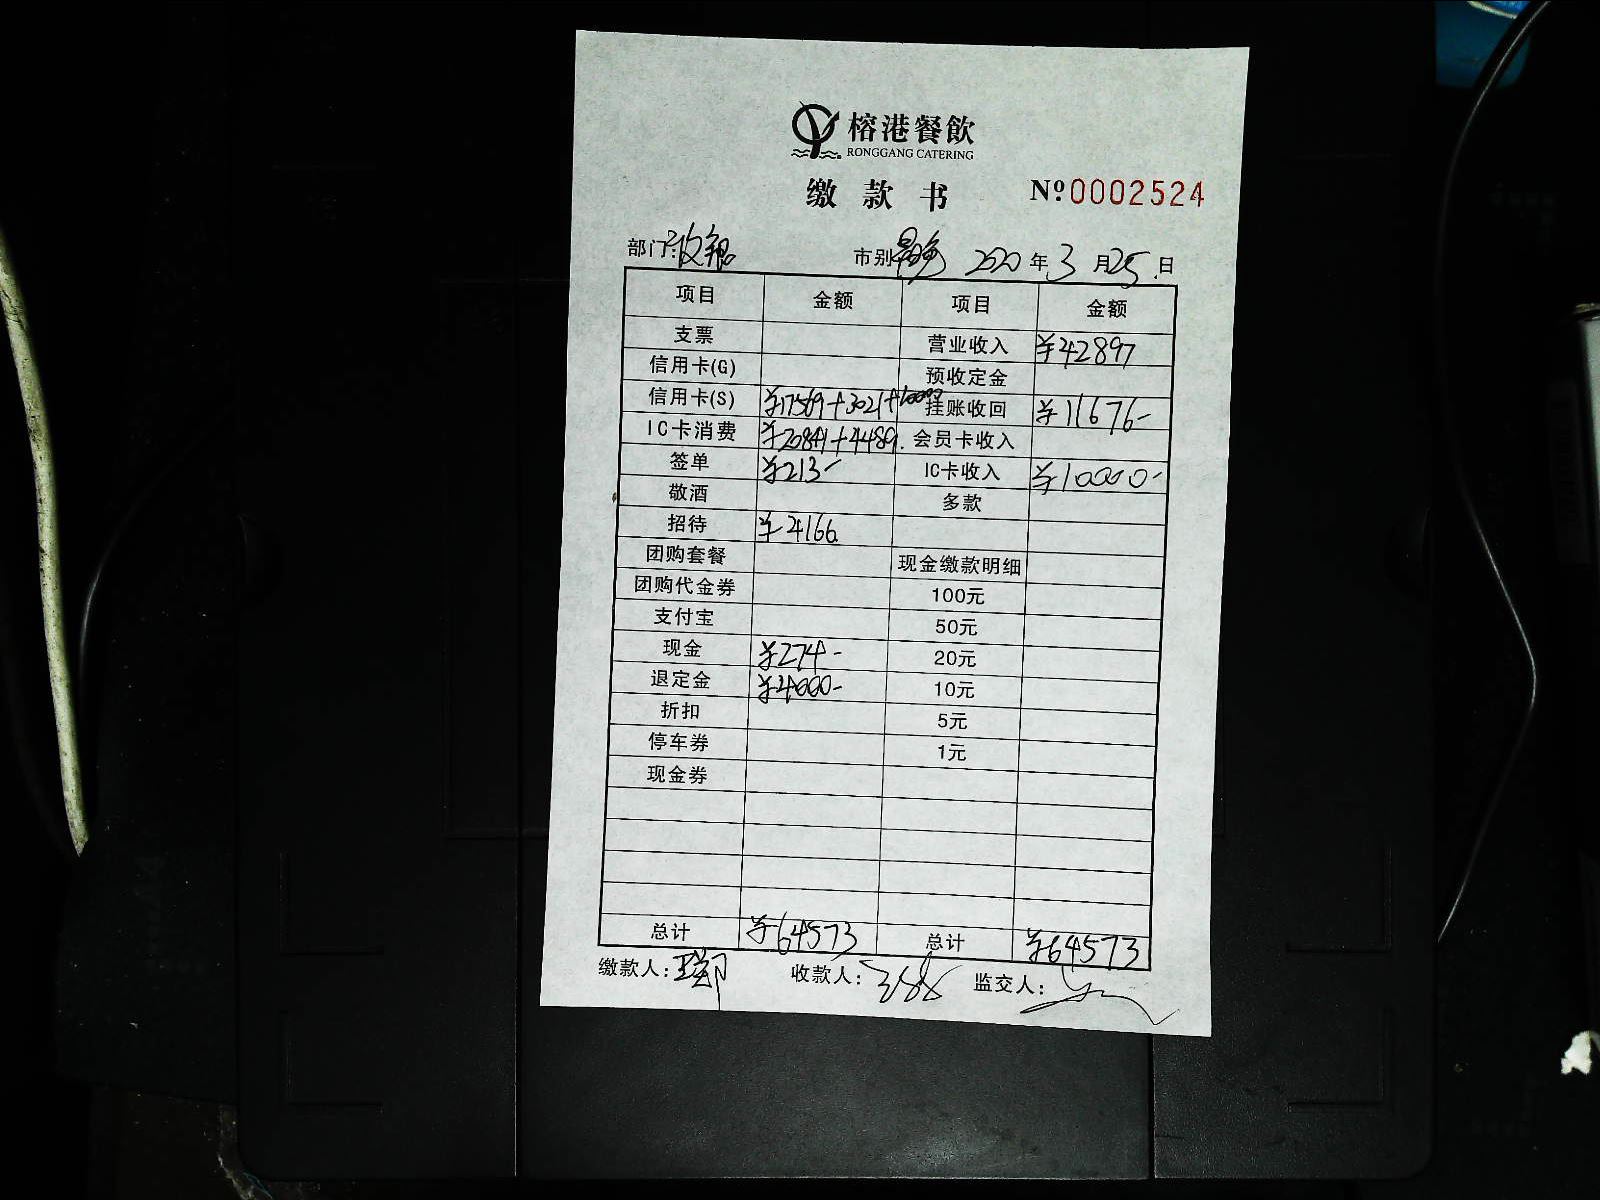 榕港餐飲
RONGGANG CATERING
缴款书 №0002524
部门:收银 市别 2020年3月25日
项目 金额 项目 金额
支票 营业收入 ¥42897
信用卡(G) 预收定金
信用卡(S) ¥17569+3021+10000 挂账收回 ¥11676-
IC卡消费 ¥20841+4489. 会员卡收入
签单 ¥213- IC卡收入 ¥10000-
敬酒 多款
招待 ¥4166
团购套餐 现金缴款明细
团购代金券 100元
支付宝 50元
现金 ¥274- 20元
退定金 ¥4000- 10元
折扣 5元
停车券 1元
现金券
总计 ¥64573 总计 ¥64573
缴款人: 收款人: 监交人: